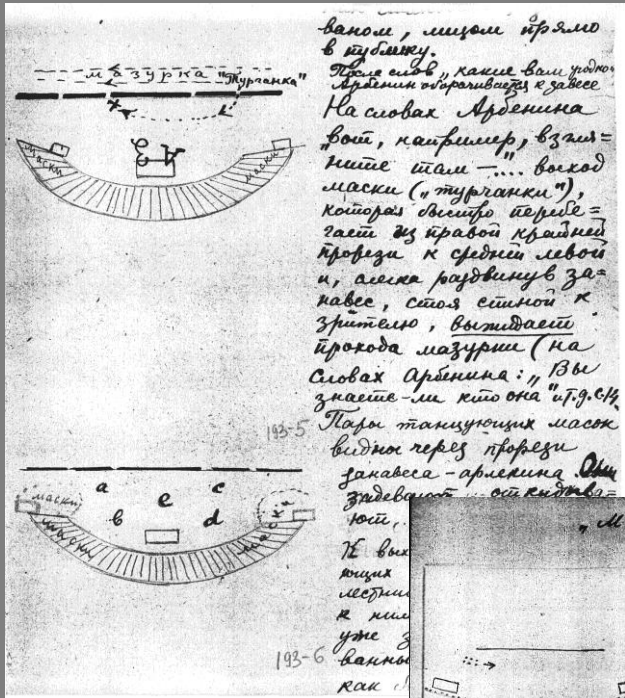 мазурка "Турчанка"
маски
маски
193-5
a
c
e
b
d
маски
маски
маски
193-6
ваном, лицом прямо
в публику.
После слов „какие вам угодно
Арбенин оборачивается к завесе
На словах Арбенина
„вот, например, взгля=
ните там —...." выход
маски („турчанки"),
которая быстро перебе=
гает из правой крайней
прорези к средней левой
и, слегка раздвинув за=
навес, стоя спиной к
зрителю, выжидает
прохода мазурки (на
словах Арбенина: „Вы
знаете-ли кто она" и т.д.
Пары танцующих масок
видны через прорези
занавеса-арлекина.
задевают откидыва=
ют,
К вых
ющих
лестни
к ним
уже з
ванны
как
„М